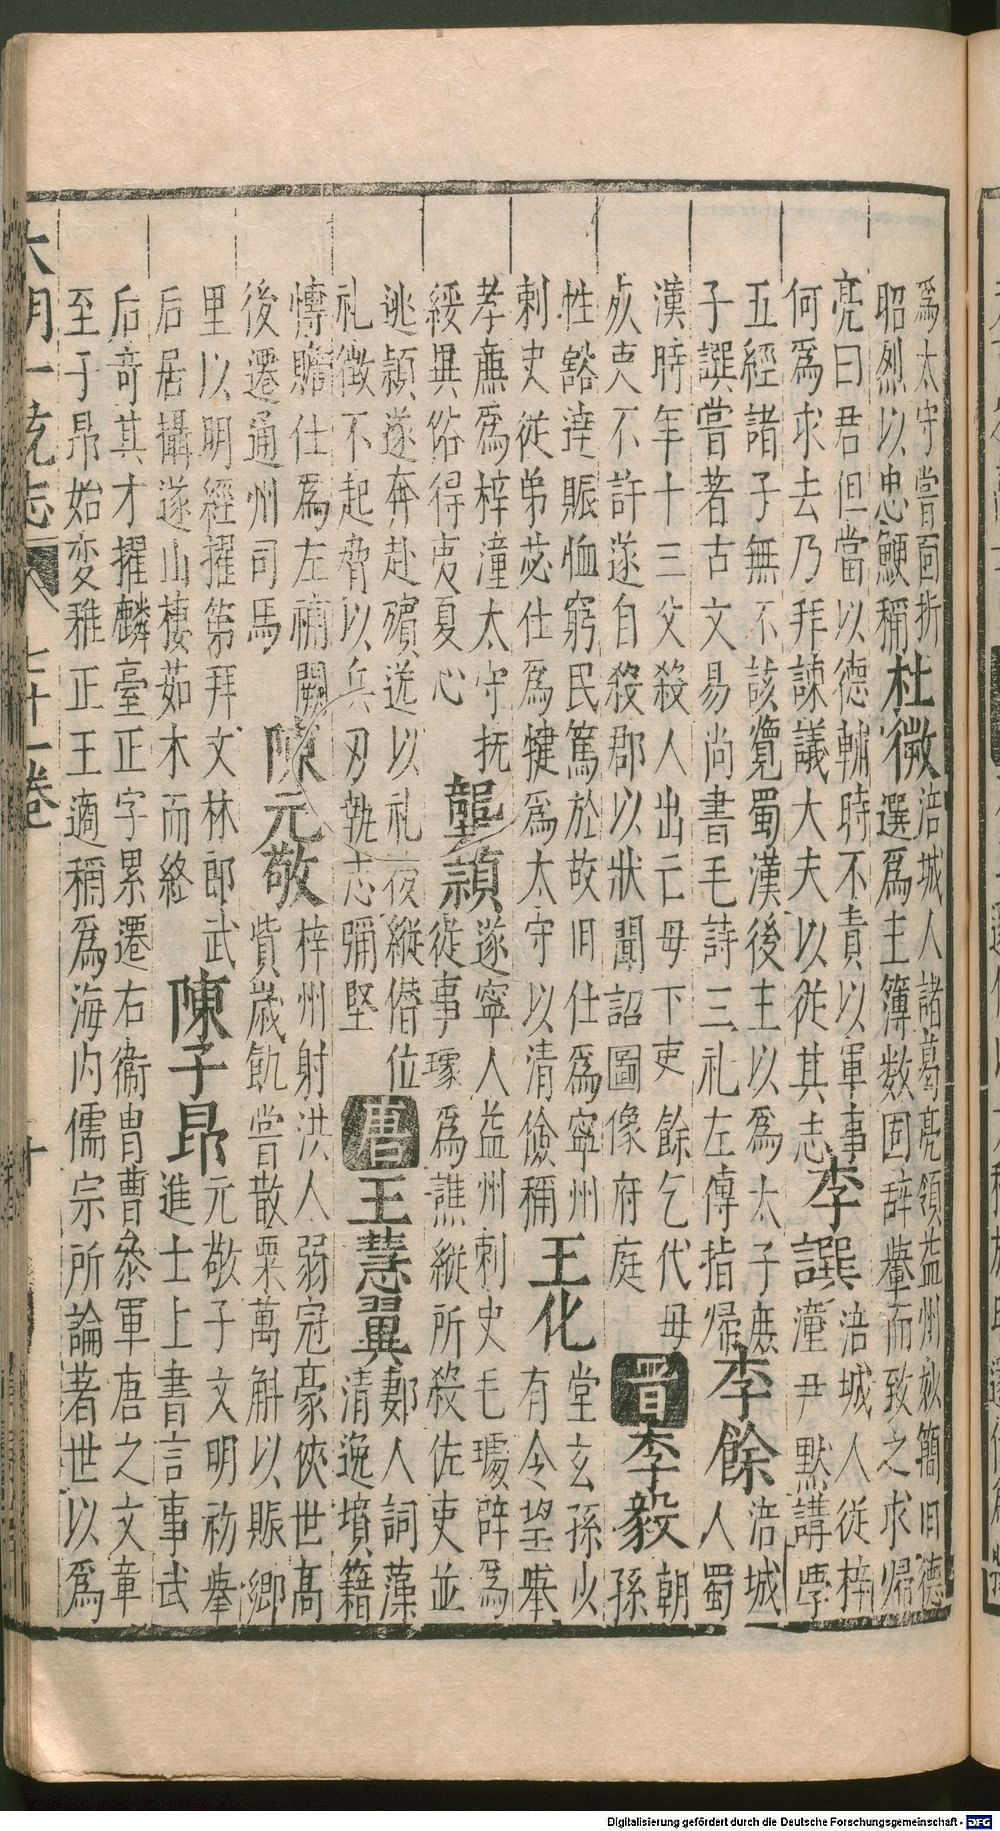 爲太守嘗面折
昭烈以忠鯁稱
杜微
涪城人諸葛亮領益州妙簡旧德
選爲主簿数固辞轝而致之求歸
亮曰君但當以德輔時不責以軍事
何爲求去乃拜諫議大夫以從其志
李譔
涪城人從梓
潼尹默講學
五經諸子無不該覽蜀漢後主以爲太子庶
子譔嘗著古文易尚書毛詩三礼左傳指歸
李餘
涪城
人蜀
漢時年十三父殺人出亡母下吏餘乞代母
死吏不許遂自殺郡以狀聞詔圖像府庭
晉
李毅
朝
孫
性豁達賑恤窮民篤於故旧仕爲寧州
刺史從弟苾仕爲犍爲太守以清儉稱
王化
堂玄孫少
有令望举
孝廉爲梓潼太守抚
綏異俗得夷夏心
龔穎
遂寧人益州刺史毛璩辟爲
從事璩爲譙縱所殺佐吏並
逃穎遂奔赴殯送以礼後縱僣位
礼徵不起脅以兵刃執志彌堅
唐
王慧翼
郪人詞藻
清逸墳籍
慱贍仕爲左補闕
後遷通州司馬
陳元敬
梓州射洪人弱冠豪俠世高
貲歲飢嘗散粟萬斛以賑鄉
里以明經擢第拜文林郎武
后居攝遂山棲茹木而終
陳子昂
元敬子文明初舉
進士上書言事武
后奇其才擢麟臺正字累遷右衞胄曹叅軍唐之文章
至于昂始变雅正王適稱爲海内儒宗所論著世以爲
大明一統志 八 七十一卷 十
Digitalisierung gefördert durch die Deutsche Forschungsgemeinschaft - DFG